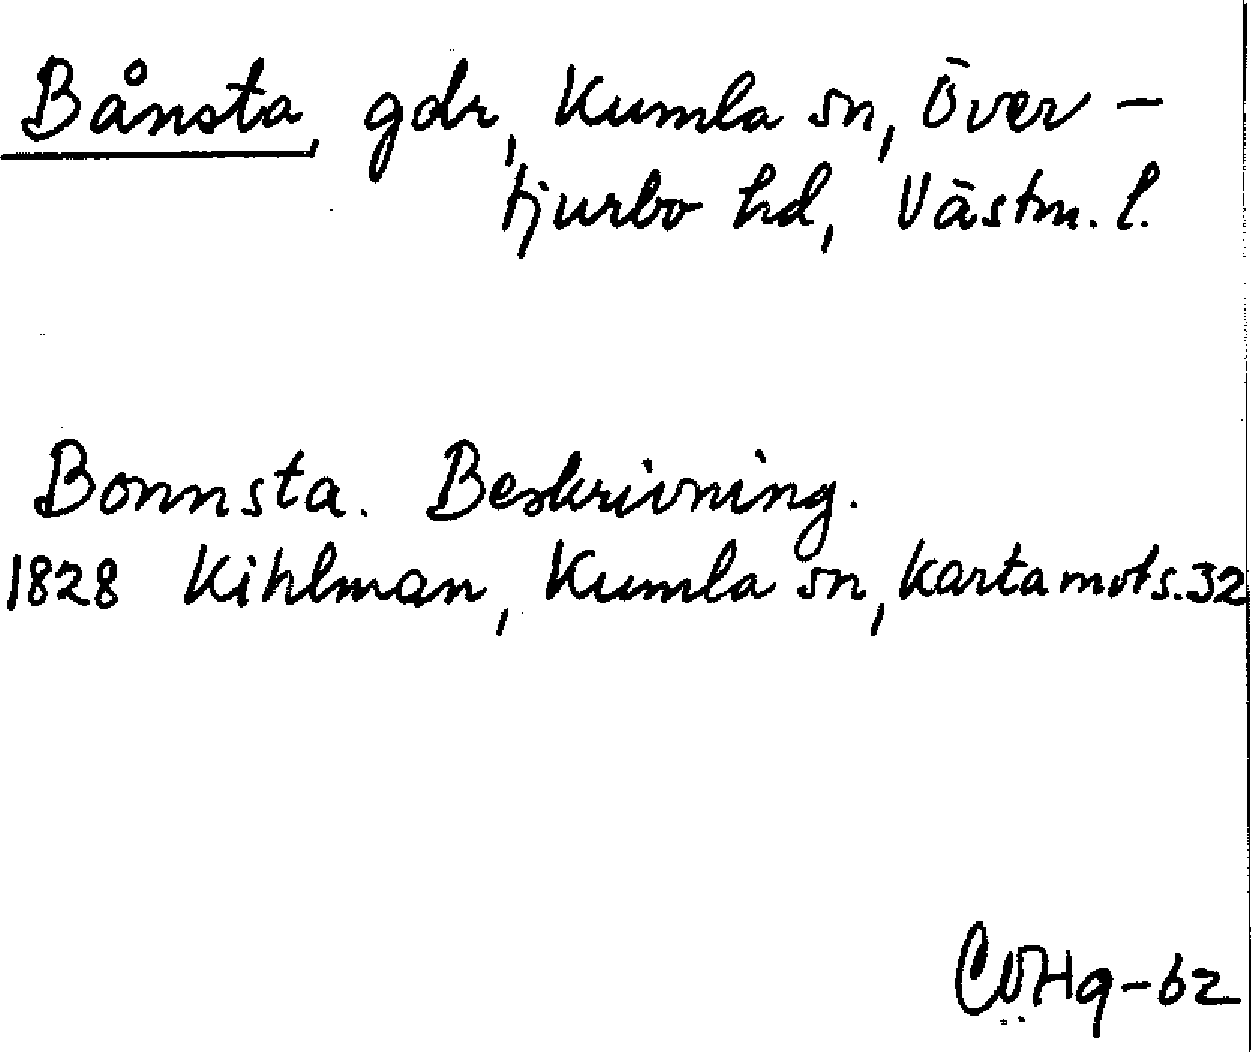 Bånsta, gdr, Kumla sn, Över-
tjurbo hd, Västm. l.
Bonnsta. Beskrivning.
1828 Kihlman, Kumla sn, karta mots. 32